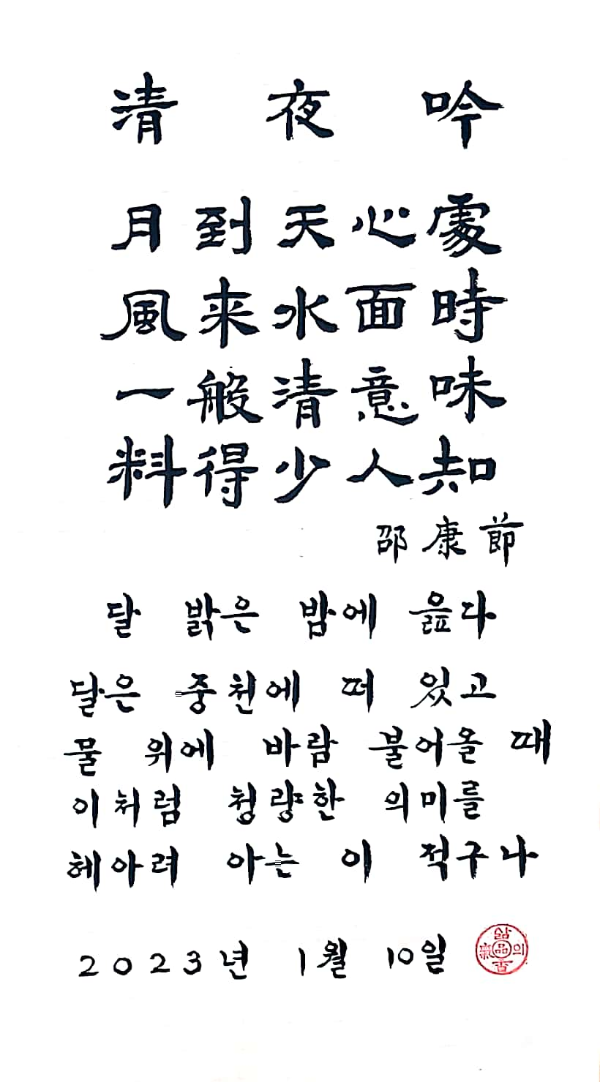 清 夜 吟
月到天心處
風来水面時
一般清意味
料得少人知
邵康節
달 밝은 밤에 읊다
달은 중천에 떠 있고
물 위에 바람 불어올 때
이처럼 청량한 의미를
헤아려 아는 이 적구나
2023년 1월 10일
삶의